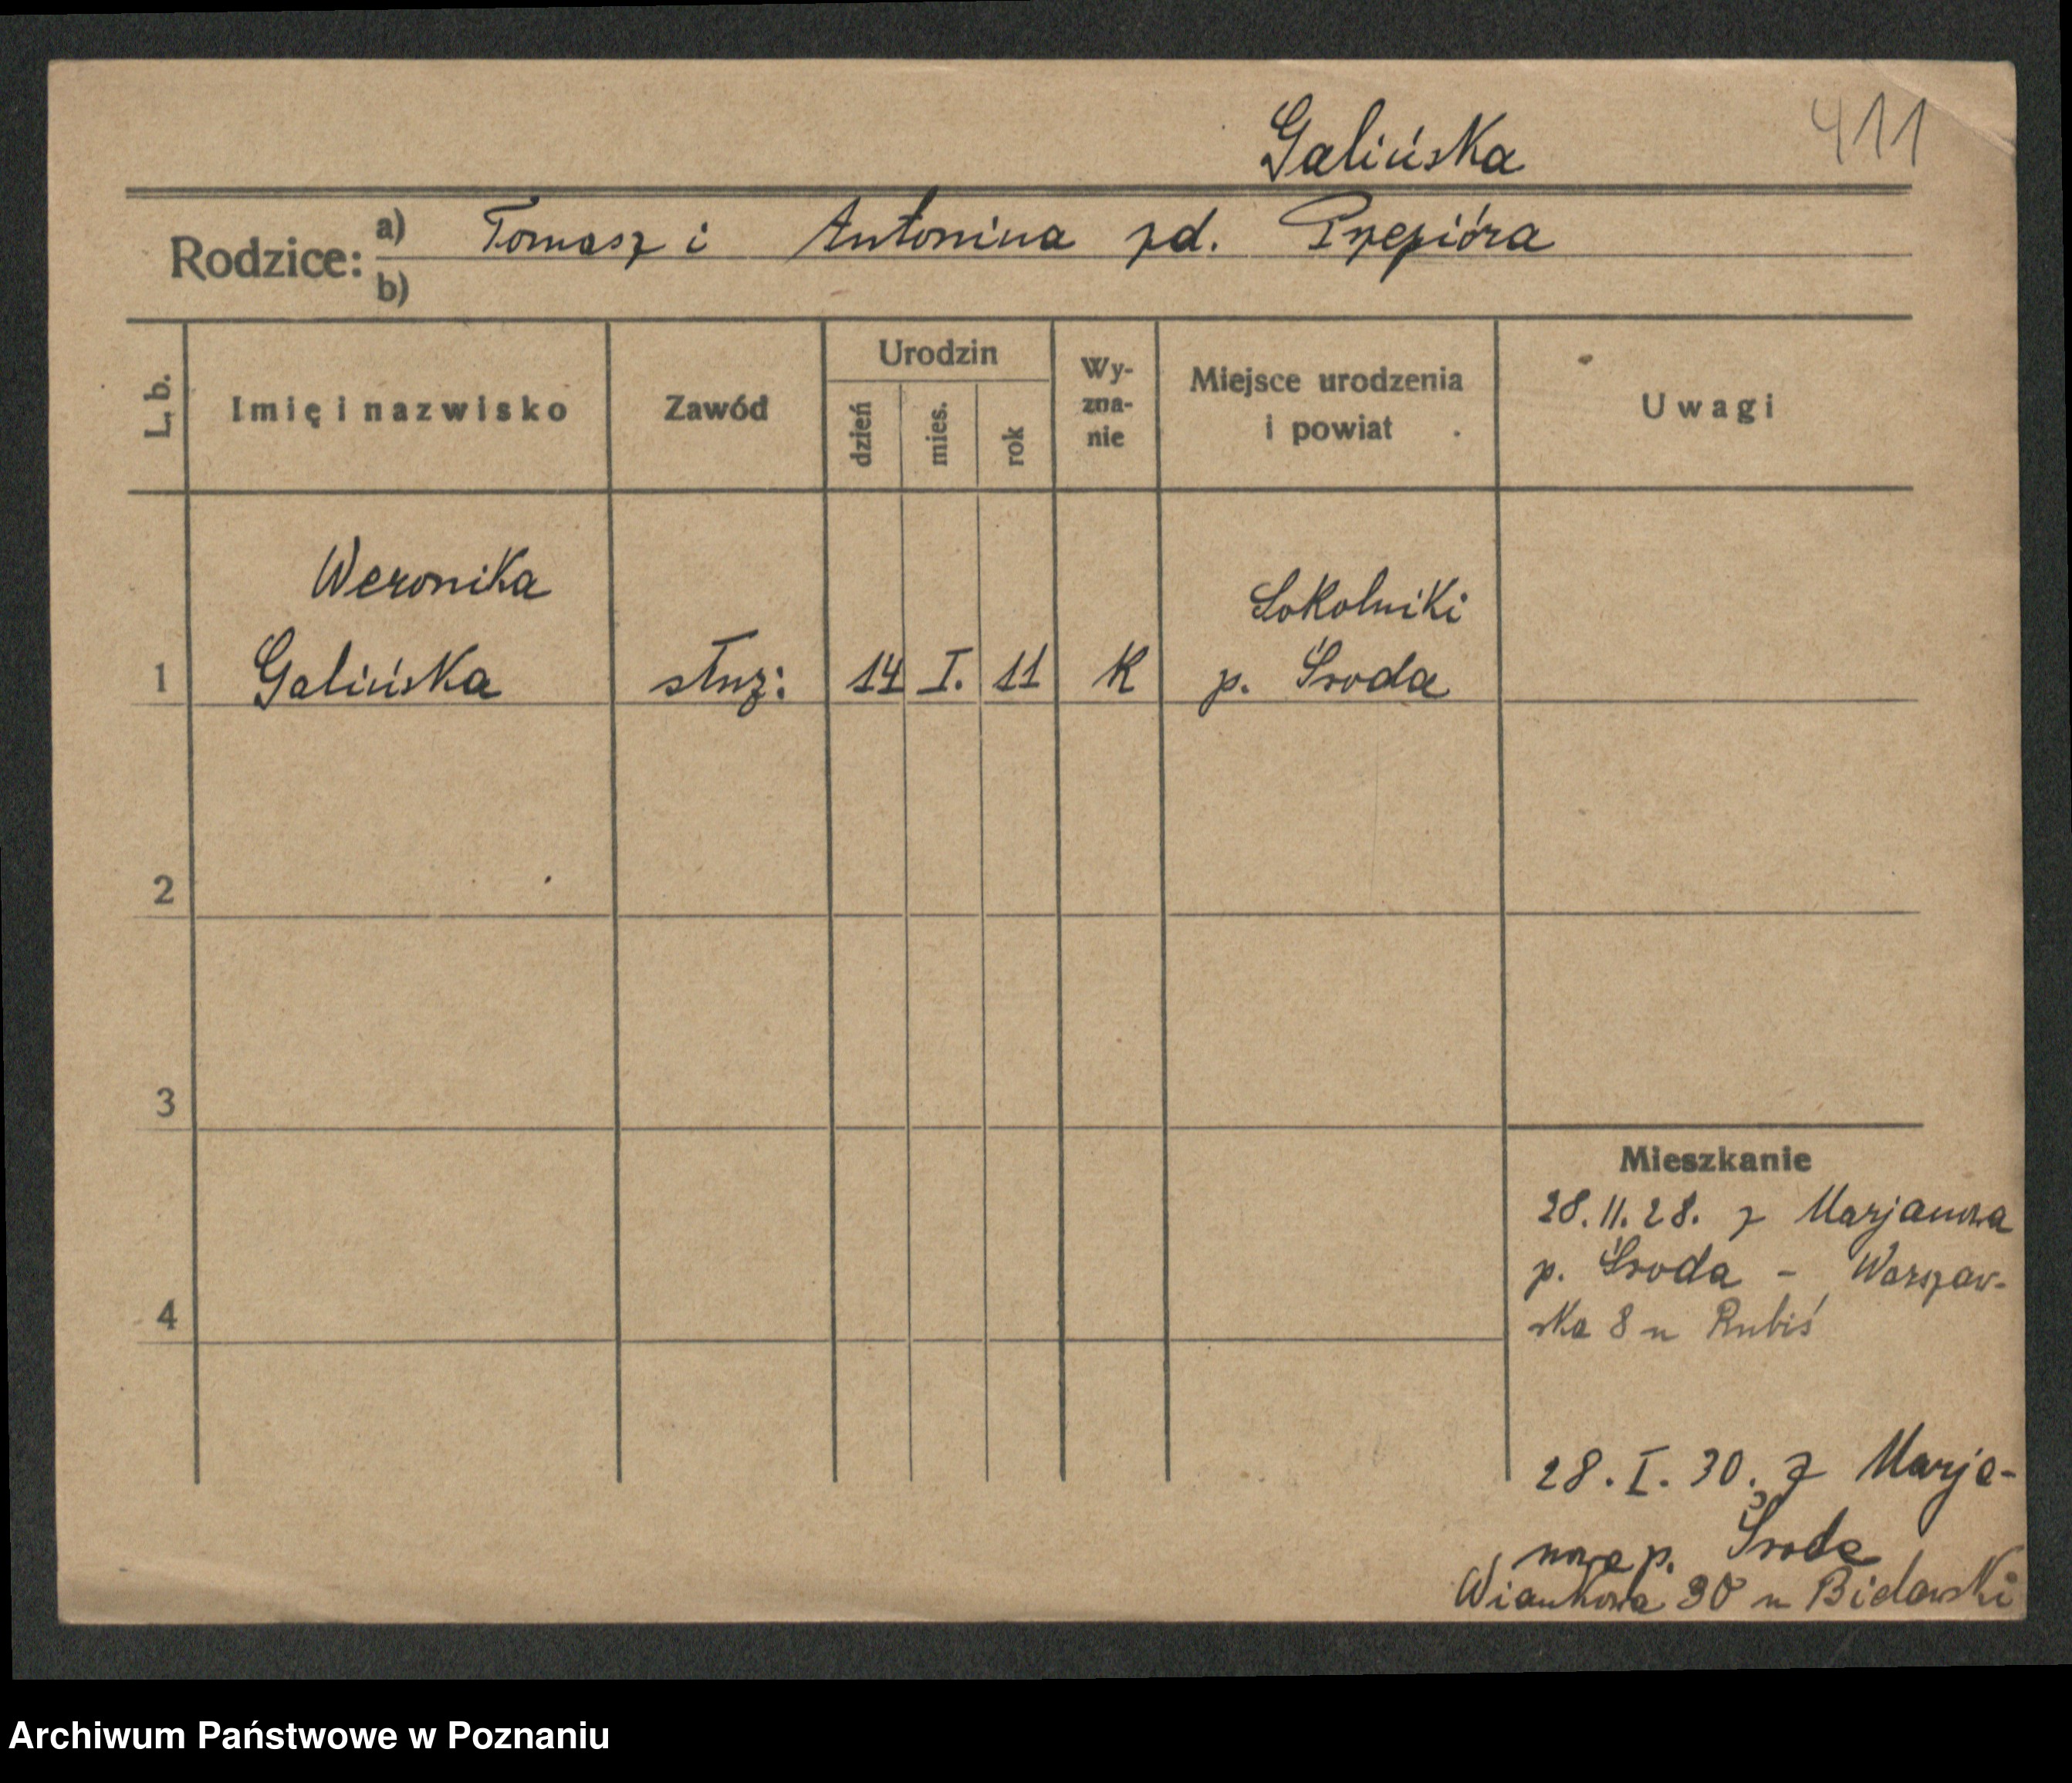 411
Galińska
Rodzice: a) Tomasz i Antonina zd. Przepióra
b)
L. b. Imię i nazwisko Zawód Urodzin dzień mies. rok Wy-zna-nie Miejsce urodzenia i powiat Uwagi
1 Weronika Galińska służ: 14 I. 11 K Sokolniki p. Środa
2
3
4
Mieszkanie
28.II.28. z Marjanowa
p. Środa - Warszaw-
ska 8 u Rubiś
28.I.30. z Marja-
nowa p. Środa
Wiankowa 30 u
Archiwum Państwowe w Poznaniu